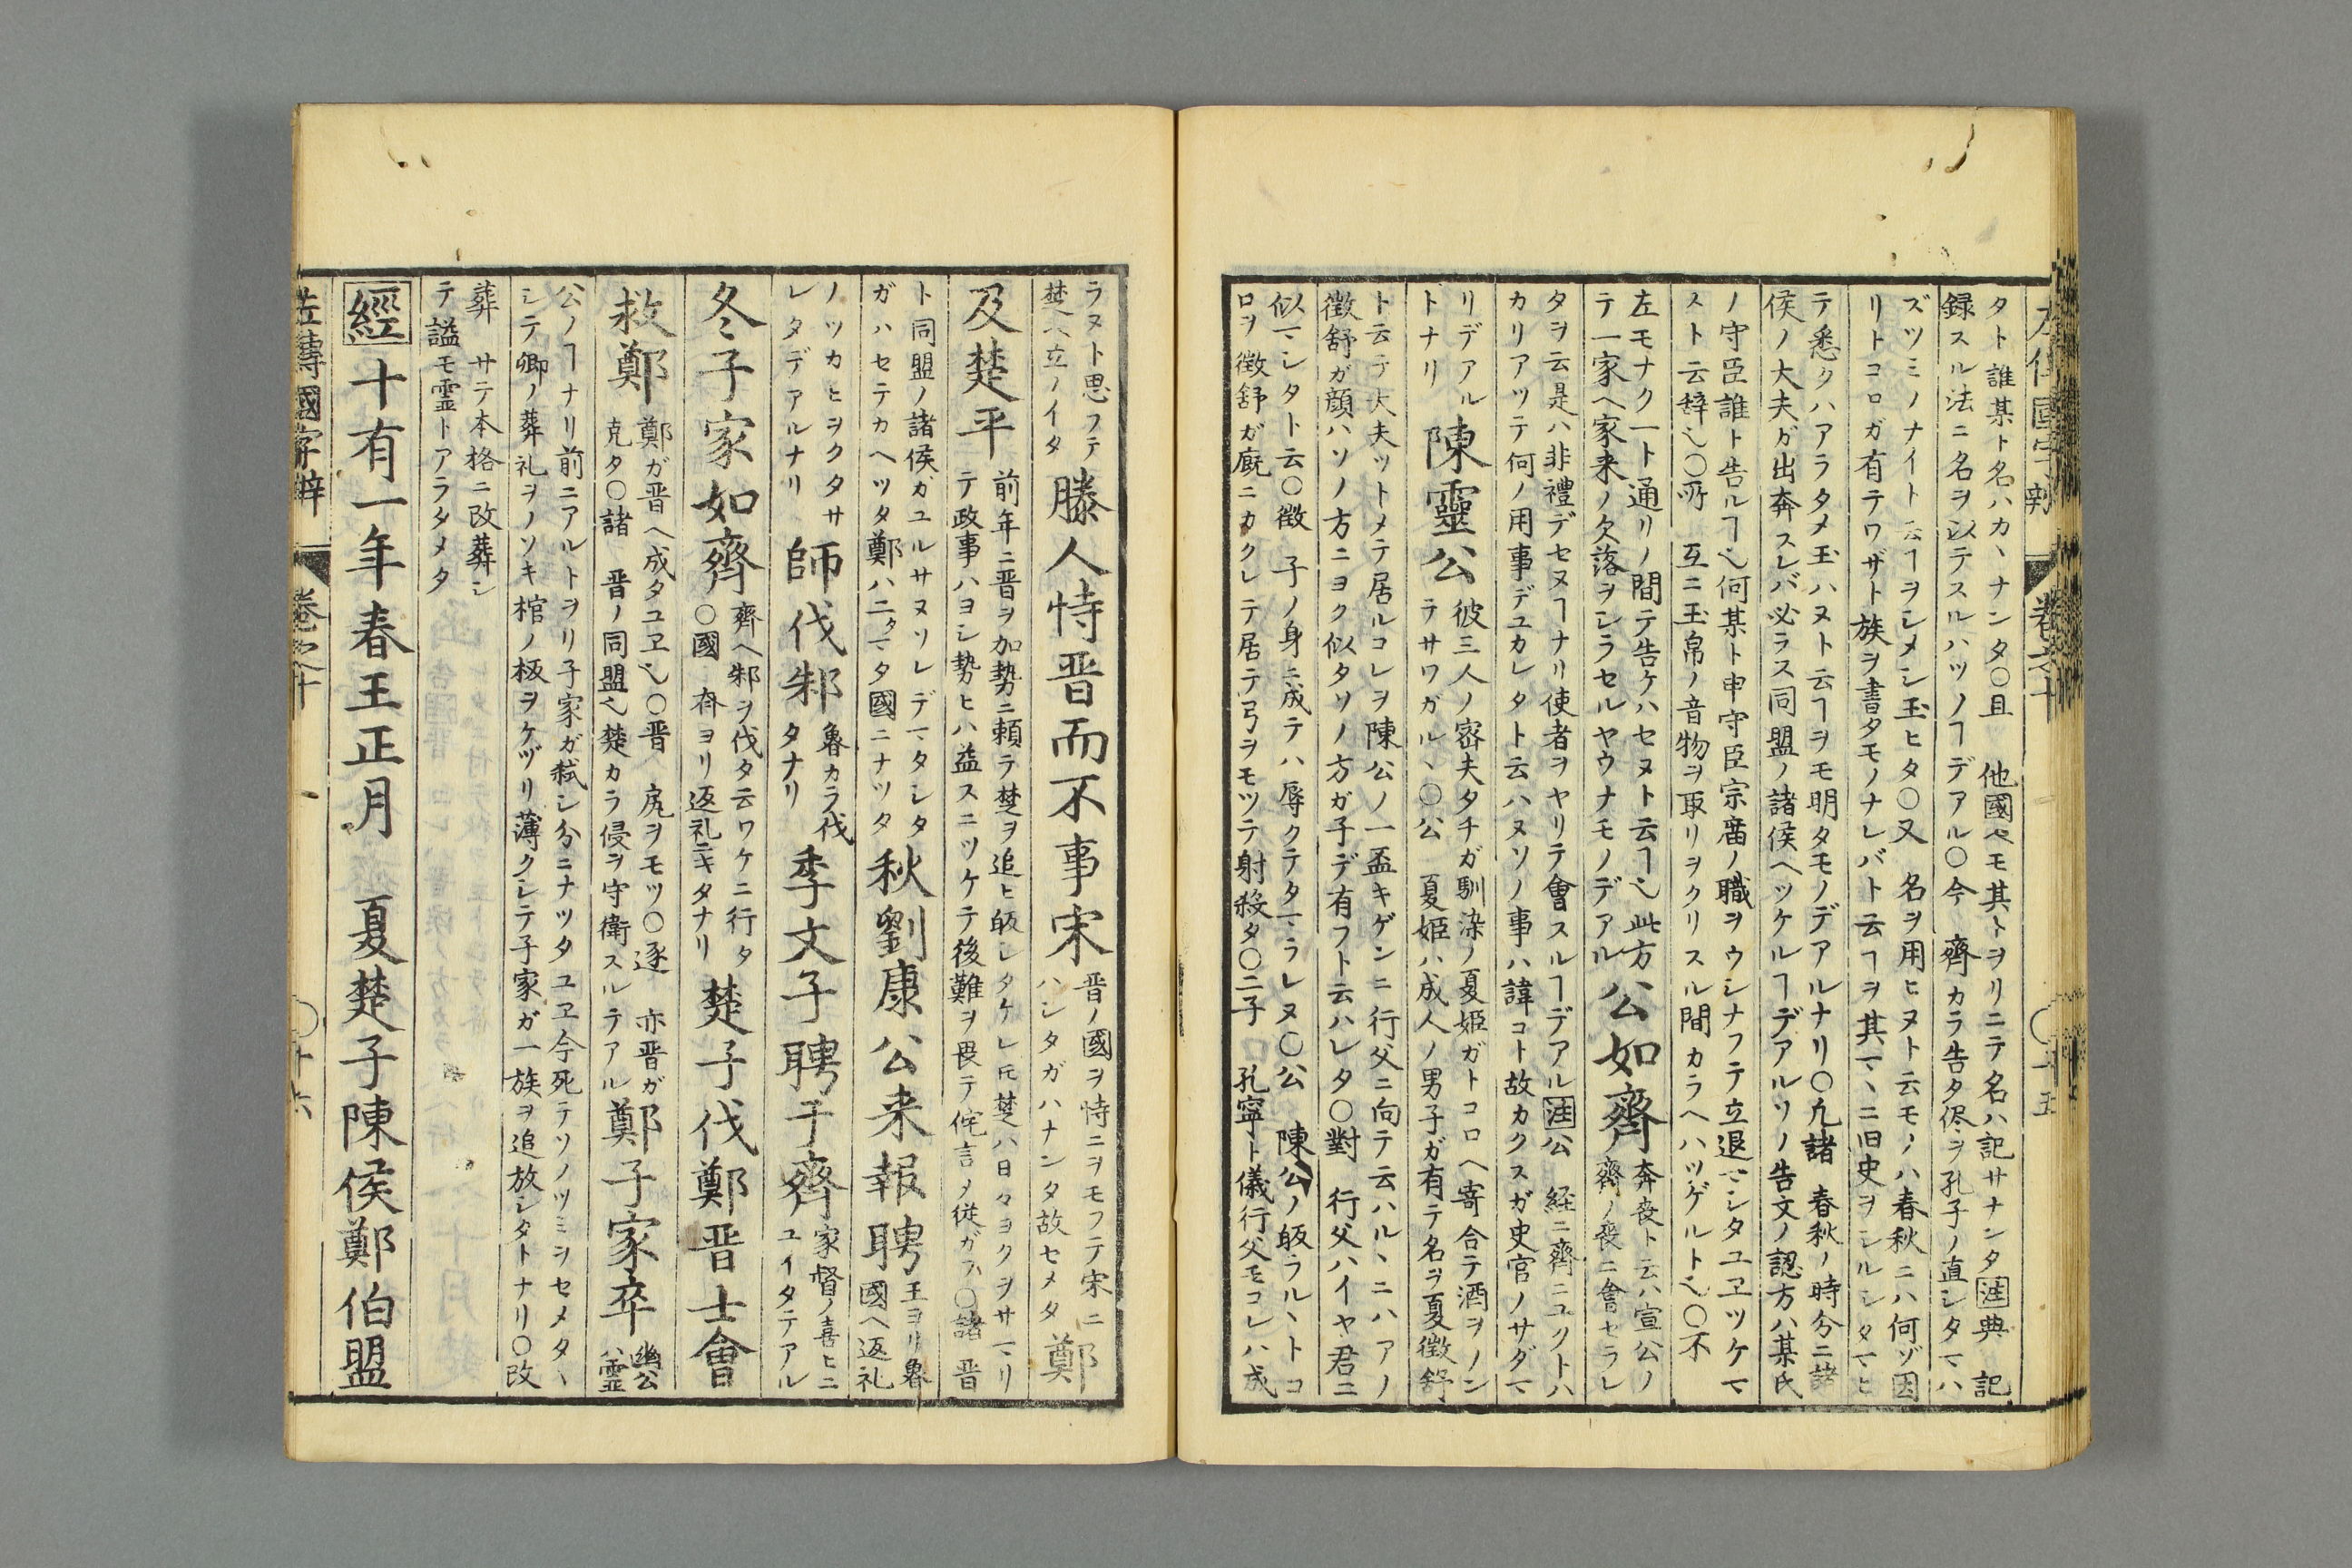 タト誰某ト名ハカヽナンタ〇且 他國ヘモ其トヲリニテ名ハ記サナンタ注典 記
録スル法ニ名ヲ以テスルハツノヿデアル〇今 齊カラ告タ侭ヲ孔子ノ直シタマハ
ズツミノナイト云ヿヲシメシ玉ヒタ〇又 名ヲ用ヒヌト云モノハ春秋ニハ何ゾ因
リトコロガ有テワザト族ヲ書タモノナレバト云ヿヲ其マヽニ旧史ヲシルシタマヒ
テ悉クハアラタメ玉ハヌト云ヿヲモ明タモノデアルナリ〇凢諸 春秋ノ時分ニ諸
侯ノ大夫ガ出奔スレバ必ラス同盟ノ諸侯ヘツケルヿデアルソノ告文ノ認方ハ某氏
ノ守臣誰ト告ルヿ也何某ト申守臣宗廟ノ職ヲウシナフテ立退マシタユヱツケマ
スト云辞也〇所 互ニ玉帛ノ音物ヲ取リヲクリスル間カラヘハツゲルト也〇不
左モナク一ト通リノ間テ告ケハセヌト云ヿ也此方
テ一家ヘ家来ノ欠落ヲシラセルヤウナモノデアル
公如齊
奔喪ト云ハ宣公ノ
齊ノ喪ニ會セラレ
タヲ云是ハ非禮デセヌヿナリ使者ヲヤリテ會スルヿデアル注公 経ニ齊ニユクトハ
カリアツテ何ノ用事デユカレタト云ハヌソノ事ハ諱コト故カクスガ史官ノサダマ
リデアル
トナリ
陳靈公
彼三人ノ密夫タチガ馴染ノ夏姫ガトコロヘ寄合テ酒ヲノン
ラサワガルヽ〇公 夏姫ハ成人ノ男子ガ有テ名ヲ夏徴舒
ト云テ大夫ツトメテ居ルコレヲ陳公ノ一盃キゲンニ行父ニ向テ云ハルヽニハアノ
徴舒ガ顔ハソノ方ニヨク似タソノ方ガ子デ有フト云ハレタ〇對 行父ハイヤ君ニ
似マシタト云〇徴 子ノ身ニ成テハ辱クテタマラレヌ〇公 陳公ノ皈ラルヽトコ
ロヲ徴舒ガ廐ニカクレテ居テ弓ヲモツテ射殺タ〇二子 孔寧ト儀行父モコレハ成
ラヌト思フテ
楚ヘ立ノイタ
滕人恃晋而不事宋
晋ノ國ヲ恃ニヲモフテ宋ニ
ハシタガハナンタ故セメタ
鄭
及楚平
前年ニ晋ヲ加勢ニ頼ラ楚ヲ追ヒ皈シタケレ𪜈楚ハ日々ヨクヲサマリ
テ政事ハヨシ勢ヒハ益スニツケテ後難ヲ畏テ侘言ノ従ガフ〇諸 晋
ト同盟ノ諸侯ガユルサヌソレデマタシタ
ガハセテカヘツタ鄭ハ二タマタ國ニナツタ
秋劉康公来報聘
王ヨリ魯
國ヘ返礼
ノツカヒヲクタサ
レタデアルナリ
師伐邾
魯カラ伐
タナリ
季文子聘于齊
家督ノ喜ヒニ
ユイタテアル
冬子家如齊
齊ヘ邾ヲ伐タ云ワケニ行タ
〇國 齊ヨリ返礼ニキタナリ
楚子伐鄭晋士會
救鄭
鄭ガ晋ヘ成タユヱ也〇晋 尻ヲモツ〇逐 亦晋ガ
克タ〇諸 晋ノ同盟也楚カラ侵ヲ守衛スルテアル
鄭子家卒
幽公
ハ靈
公ノヿナリ前ニアルトヲリ子家ガ弑シ分ニナツタユヱ今死テソノツミヲセメタヽ
シテ卿ノ葬礼ヲノソキ棺ノ板ヲケヅリ薄クシテ子家ガ一族ヲ追放シタトナリ〇改
葬 サテ本格ニ改葬シ
テ謚モ霊トアラタメタ
經十有一年春王正月 夏楚子陳侯鄭伯盟
左傳國字辯 卷之十 〇十六